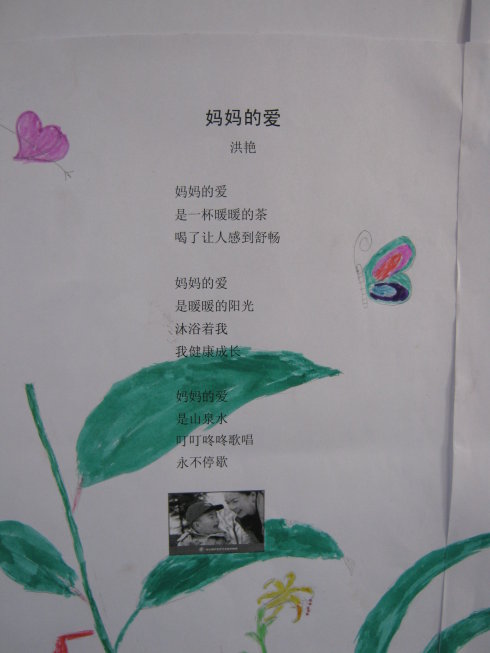 妈妈的爱
洪艳
妈妈的爱
是一杯暖暖的茶
喝了让人感到舒畅
妈妈的爱
是暖暖的阳光
沐浴着我
我健康成长
妈妈的爱
是山泉水
叮叮咚咚歌唱
永不停歇